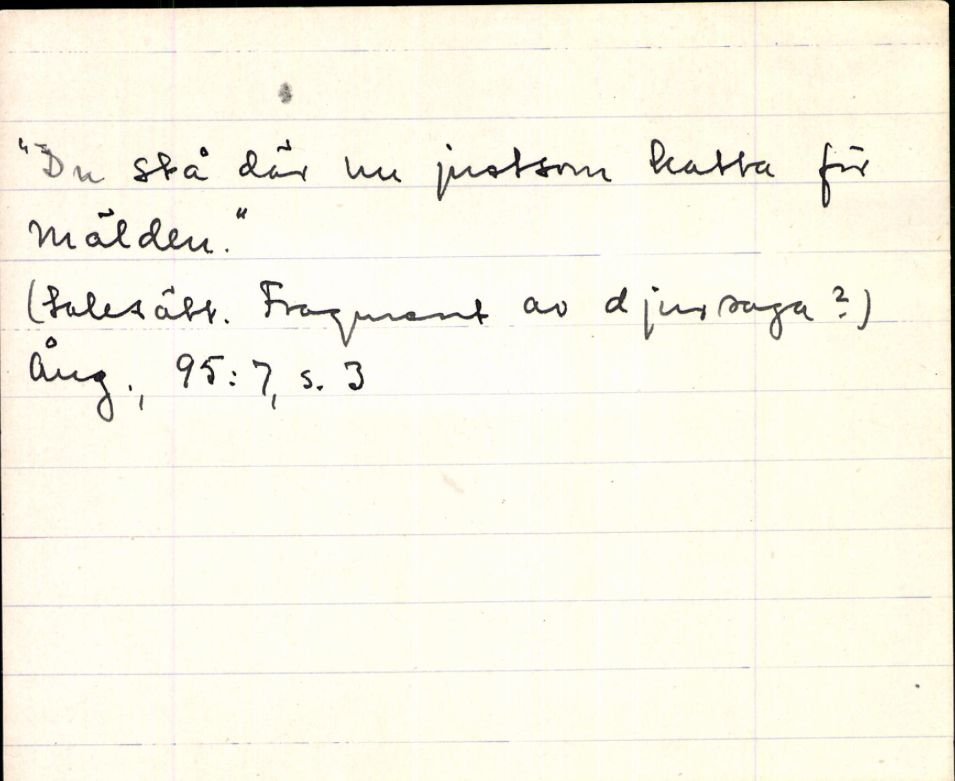 "Du stå där nu justsom katta för
mälden."
(talesätt. Fragment av djursaga?)
Ång., 95:7, s. 3